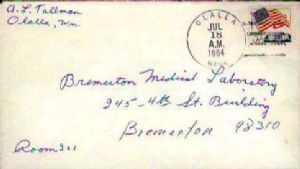 A. L. Tallman
Olalla, Wn.
OLALLA
JUL
18
A.M.
1964
WASH.
Bremerton Medical Laboratory
245-4th St. Building
Bremerton 98310
Room 311